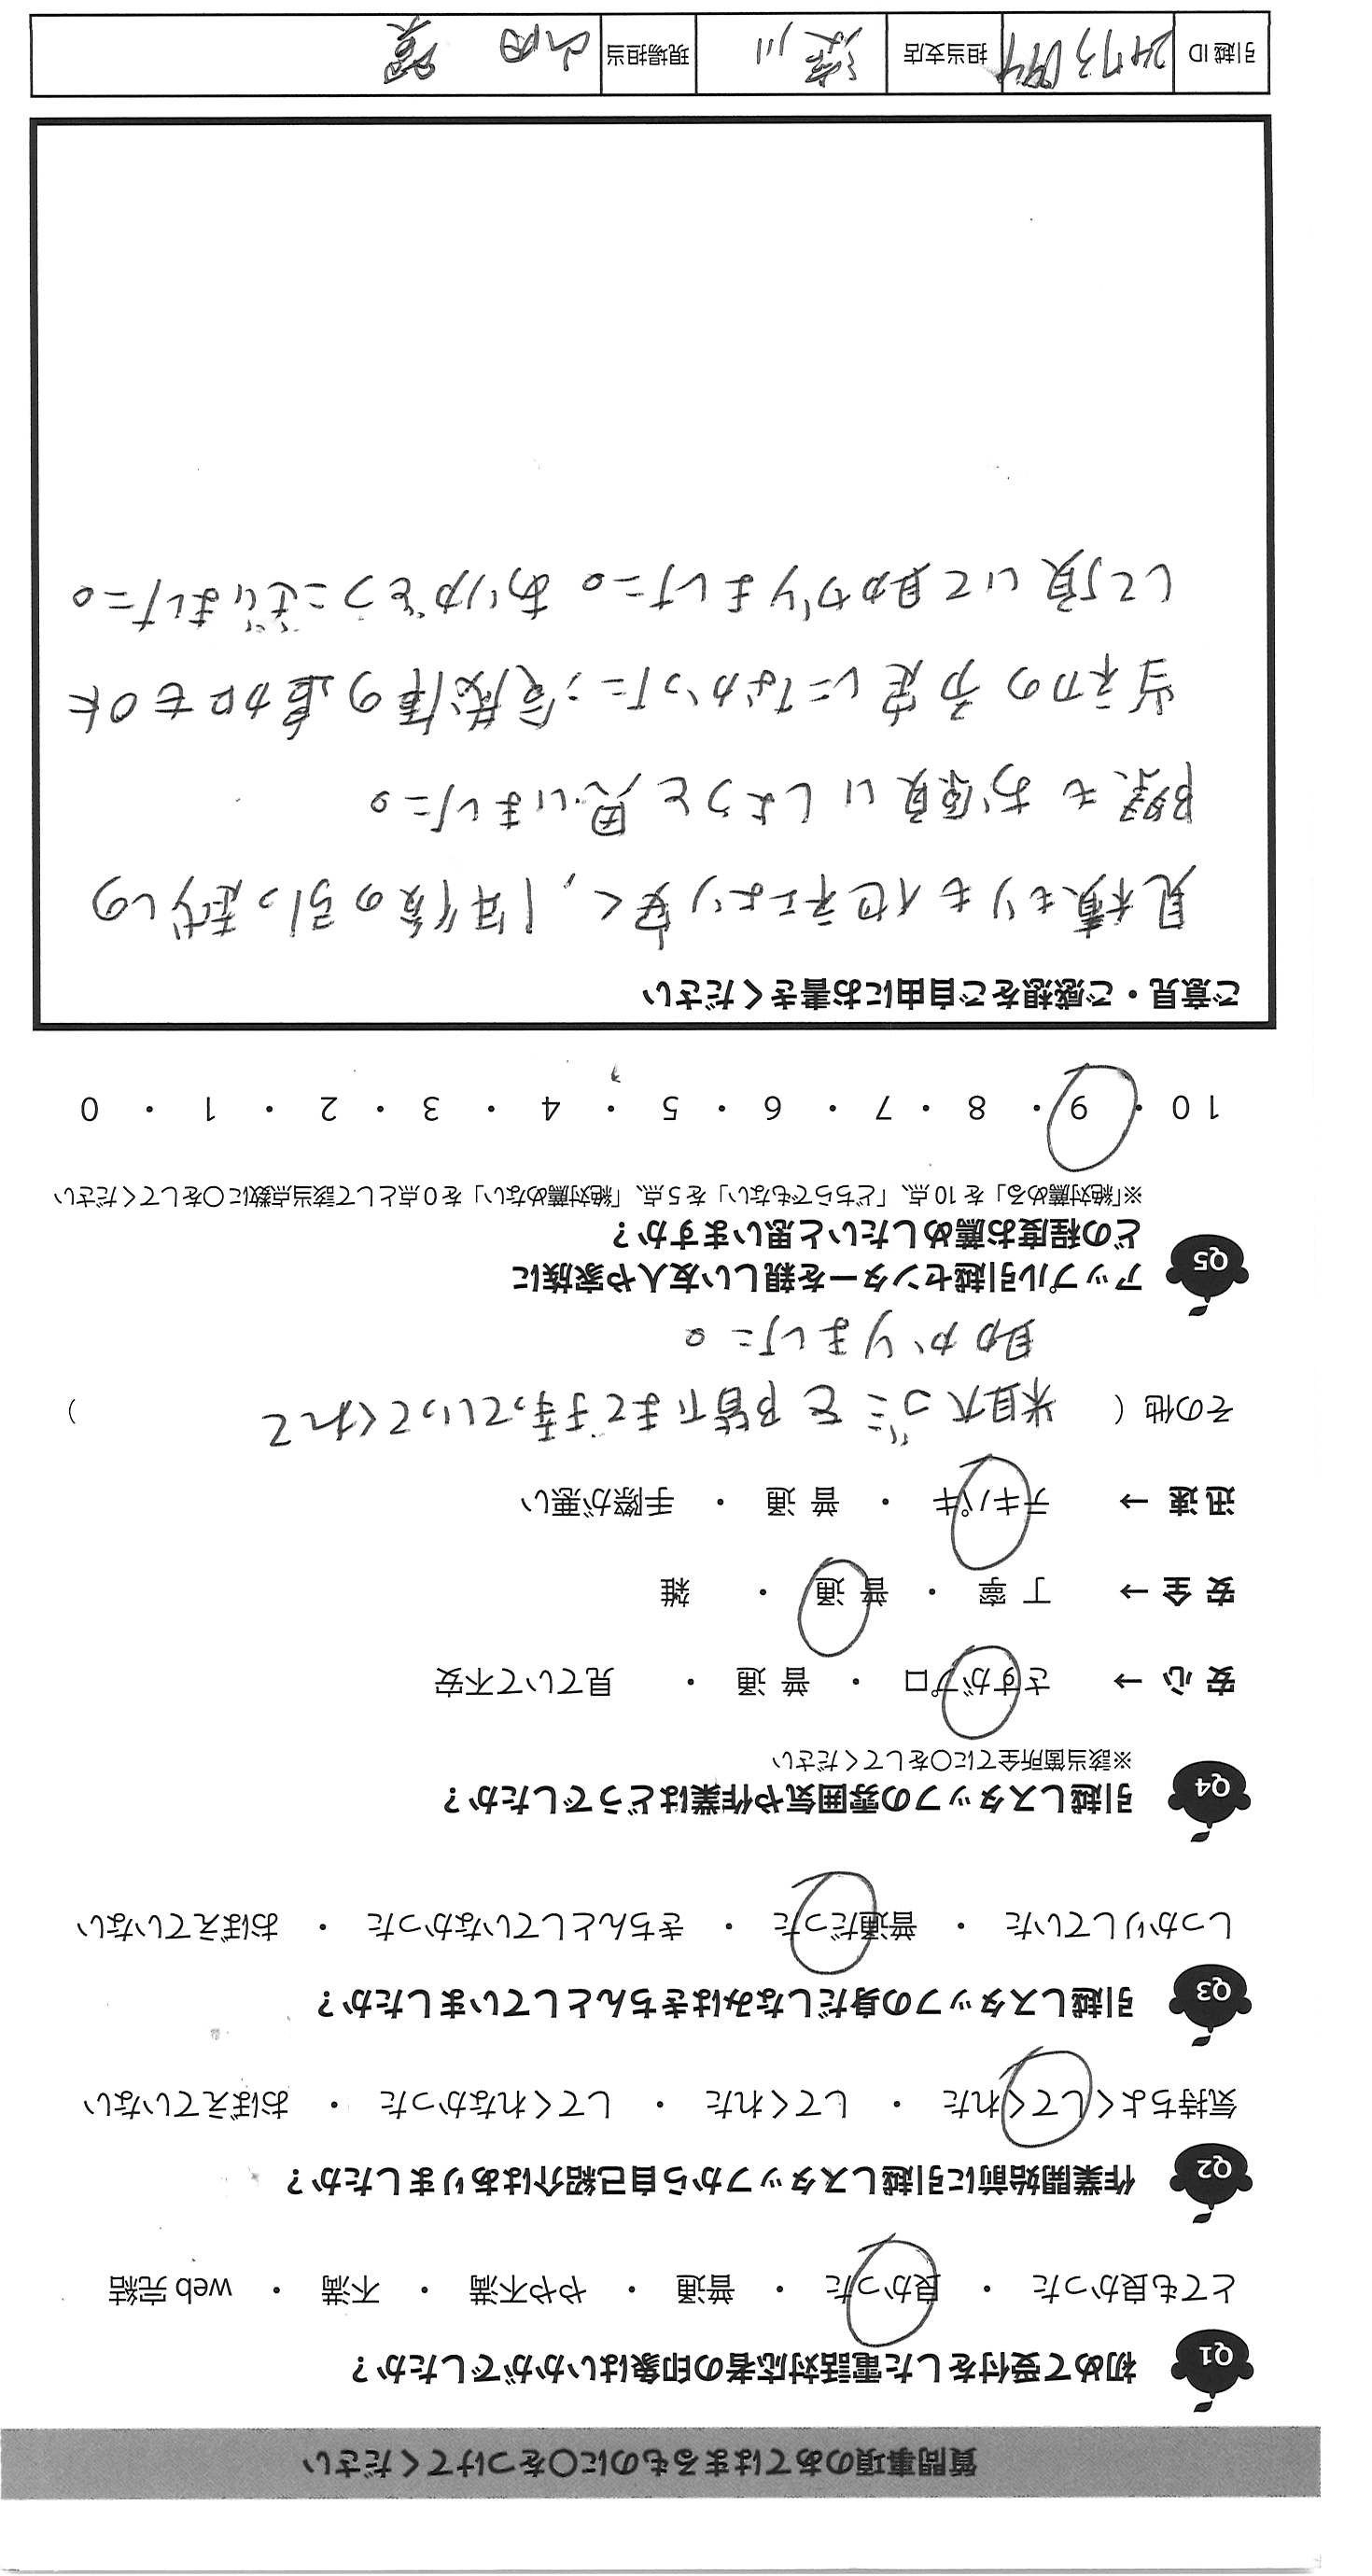 質問事項のあてはまるものに○をつけてください
Q1 初めて受付をした電話対応者の印象はいかがでしたか?
とても良かった ・ 良かった ・ 普通 ・ やや不満 ・ 不満 ・ web 完結
Q2 作業開始前に引越しスタッフから自己紹介はありましたか?
気持ちよくしてくれた ・ してくれた ・ してくれなかった ・ おぼえていない
Q3 引越しスタッフの身だしなみはきちんとしていましたか?
しっかりしていた ・ 普通だった ・ きちんとしていなかった ・ おぼえていない
Q4 引越しスタッフの雰囲気や作業はどうでしたか?
※該当箇所全てに○をしてください
安 心 → さすがプロ ・ 普 通 ・ 見ていて不安
安 全 → 丁 寧 ・ 普 通 ・ 雑
迅 速 → テキパキ ・ 普 通 ・ 手際が悪い
その他 ( 粗大ゴミを階下まで持っていってくれて )
助かりました。
Q5 アップル引越センターを親しい友人や家族に
どの程度お薦めしたいと思いますか?
※「絶対薦める」を 10 点、「どちらでもない」を 5 点、「絶対薦めない」を 0 点として該当点数に○をしてください
10 ・ 9 ・ 8 ・ 7 ・ 6 ・ 5 ・ 4 ・ 3 ・ 2 ・ 1 ・ 0
ご意見・ご感想をご自由にお書きください
見積もりも他社より安く、1年後の引っ越しの
際もお願いしようと思いました。
当初の予定になかった、食器棚の追加もOK
して頂いて助かりました。ありがとうございました。
引越ID 担当支店 現場担当 山内